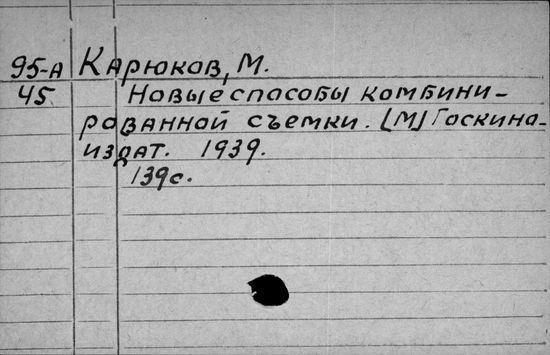 95-А Карюков, М.
45 Новые способы комбини-
рованной съемки. [М] Госкино-
издат. 1939.
139с.